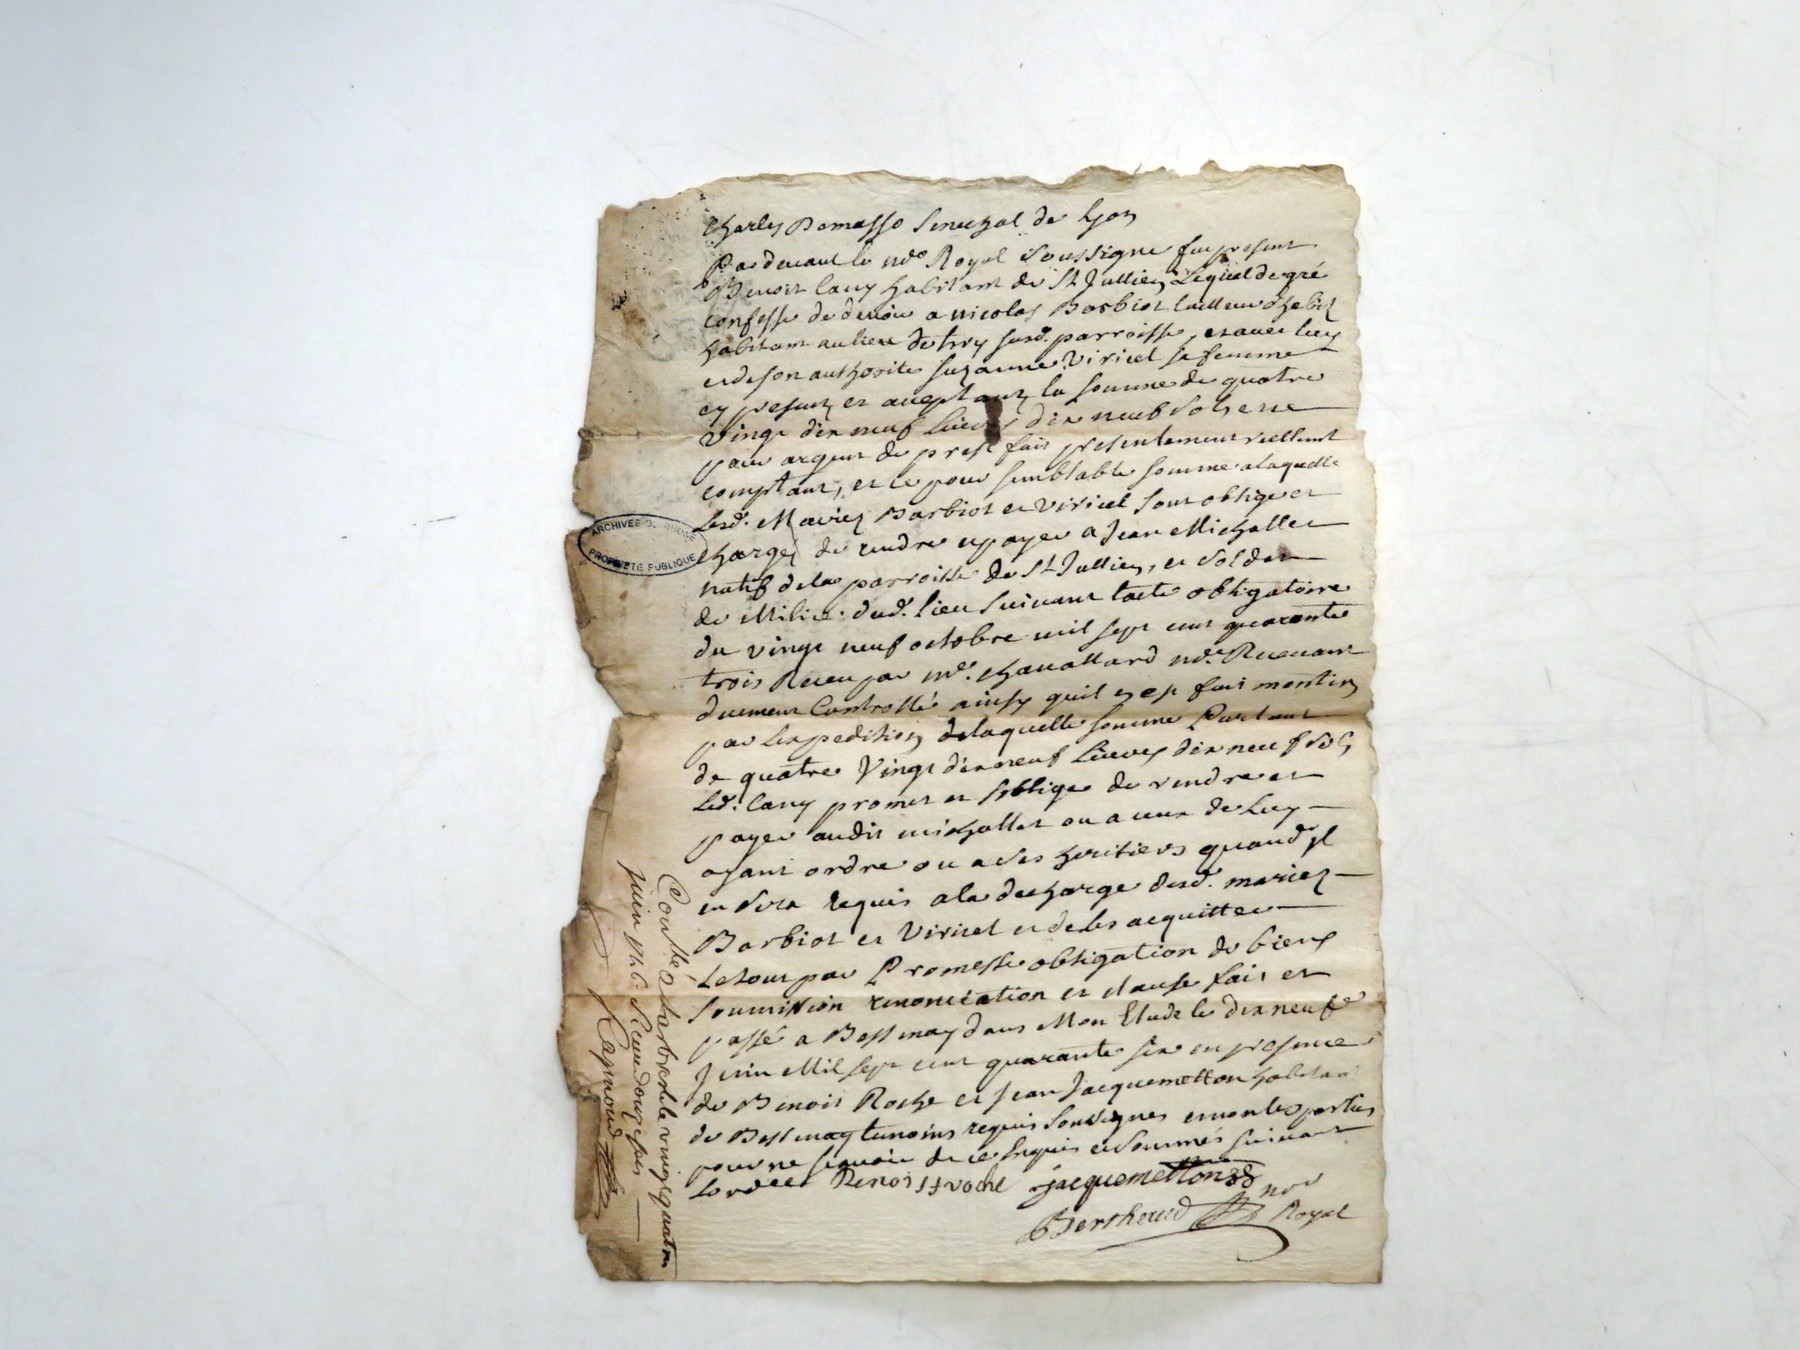 Charles Domasso Senechal de Lyon
Pardevant le no.re Royal soussigné fut present
Benoit Cany habitant de St Jullien Lequel de gré
confesse de devoir a nicolas Barbiot tailleur d'habits
habitant au lieu de trvy susd. parroisse, et avec luy
et de son authorité suzanne Viricel sa femme
cy presents et aceptants la somme de quatre
Vingt dix neuf Livres dix neuf sols et ce
pour argent de prest fait presentement réellemt
comptant, et ce pour semblable somme a laquelle
Lesd. Mariez Barbiot et Viricel sont obligé et
chargés de rendre et payer a Jean Michallet
natif dela parroisse de St Jullien, et soldat
de Milice dud. lieu suivant lacte obligatoire
du vingt neuf octobre mil sept cent quarante
trois Receu par me. chavallard no.re Recevant
duement Controllé ainsy quil en est fait mention
par Lexpedition delaquelle somme Partant
de quatre Vingt dix neuf Livres dix neuf sols
Led. Cany promet et soblige de rendre et
payer audit michallet ou a ceux de Luy
ayant ordre ou a ses heritiers quand yl
en sera requis ala decharge desd. mariez
Barbiot et Viricel et deles acquitter
Letout par Promesse obligation de biens
soumission renonciation et clause fait et
passé a Bessenay dans Mon Etude le dix neufe
Juin Mil sept cent quarante six en presence
de Benoit Roche et Jean Jacquemetton habitant
de Bessenay temoins requis soussignes et non les parties
pour ne sçavoir de ce Enquis et sommés suivant
Lord.ce Benoist roche jacquemetton
Berthoud no.re Royal
Conllé a Larbresle le vingt quatre
juin 1746. Reçeu douze sols
Raymond
ARCHIVES DU RHONE
PROPRIETE PUBLIQUE